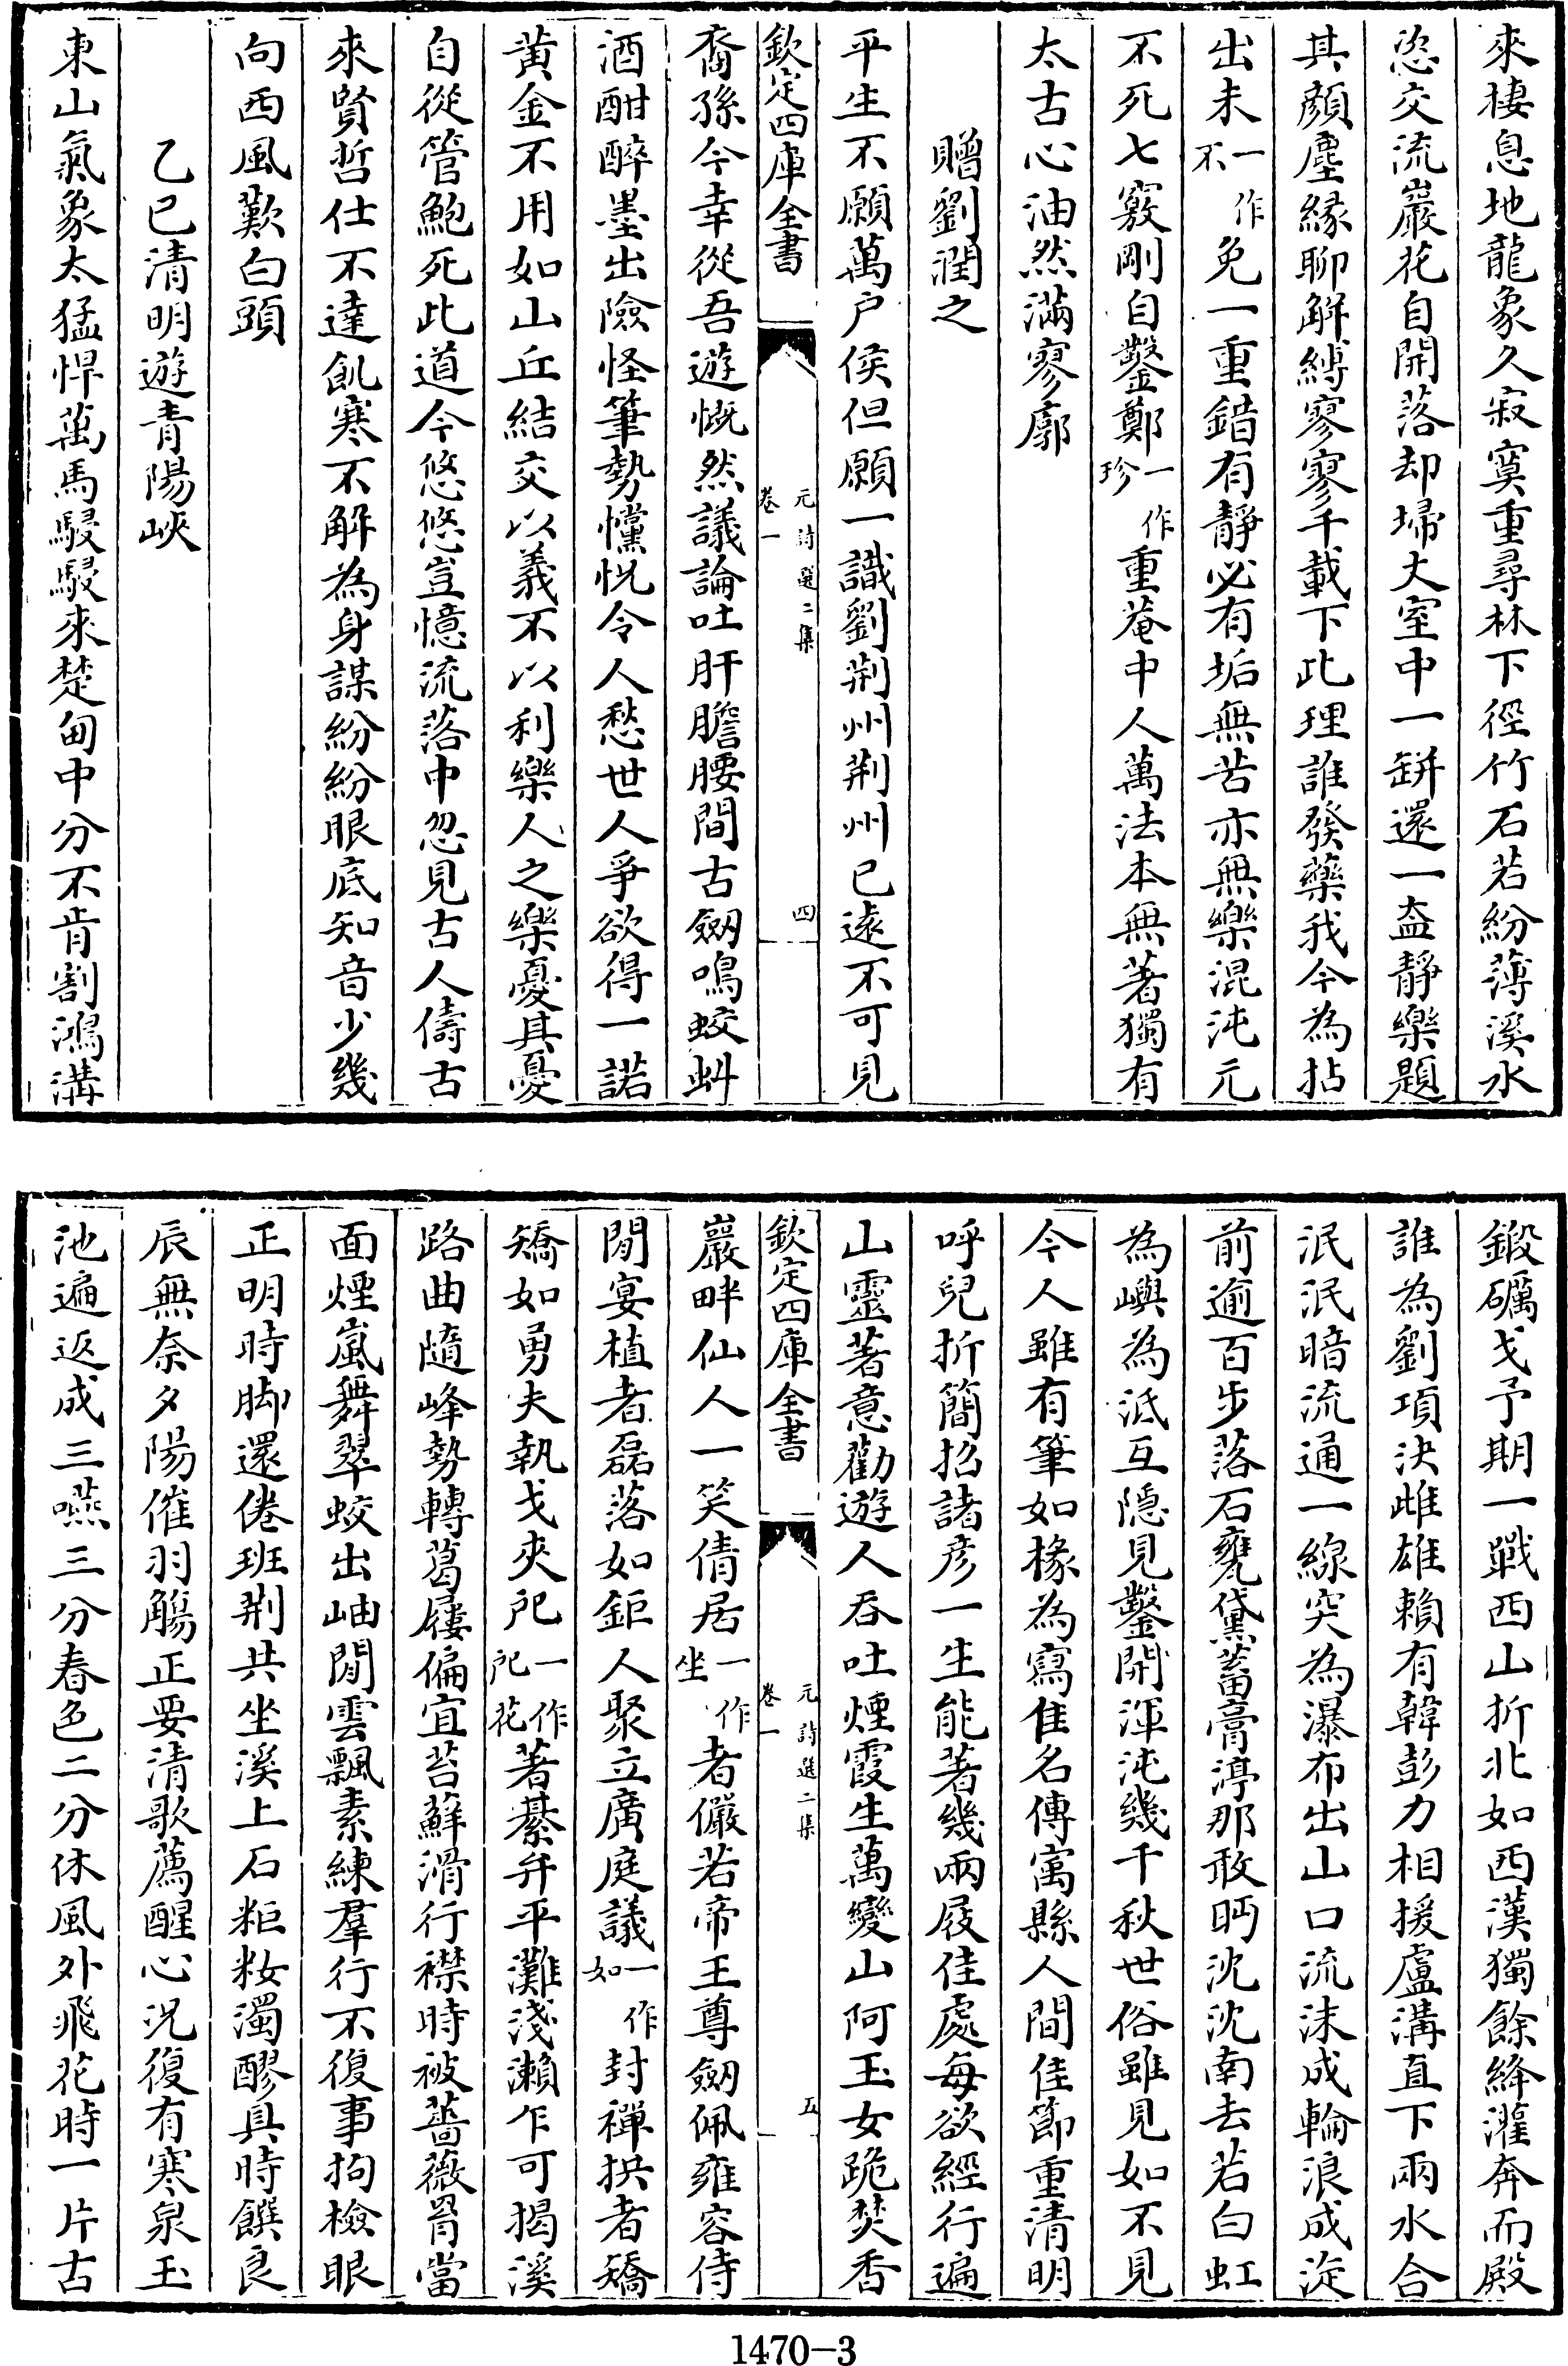 來棲息地龍象久寂寞重尋林下徑竹石若紛薄溪水
恣交流巖花自開落却埽大室中一缾還一盍靜樂題
其顏塵縁聊解縛寥寥千載下此理誰發藥我今為拈
出未一作不免一重錯有靜必有垢無苦亦無樂混沌元
不死七竅剛自鑿鄭一作珍重菴中人萬法本無著獨有
太古心油然滿寥廓
贈劉潤之
平生不願萬户侯但願一識劉荆州荆州已遠不可見
欽定四庫全書
元詩選二集
卷一
四
裔孫今幸從吾遊慨然議論吐肝膽腰間古劔鳴蛟虯
酒酣醉墨出險怪筆勢戃怳令人愁世人爭欲得一諾
黄金不用如山丘結交以義不以利樂人之樂憂其憂
自從管鮑死此道今悠悠豈憶流落中忽見古人儔古
來賢哲仕不達飢寒不解為身謀紛紛眼底知音少幾
向西風歎白頭
乙巳清明遊青陽峽
東山氣象太猛悍萬馬駸駸來楚甸中分不肯割鴻溝
鍛礪戈予期一戰西山折北如西漢獨餘絳灌奔而殿
誰為劉項決雌雄賴有韓彭力相援盧溝直下兩水合
泯泯暗流通一線突為瀑布出山口流沫成輪浪成淀
前逾百步落石甕黛蓄膏渟那敢眄沈沈南去若白虹
為嶼為汦互隠見鑿開渾沌幾千秋世俗雖見如不見
今人雖有筆如椽為寫隹名傳㝢縣人間佳節重清明
呼兒折簡招諸彦一生能著幾兩屐佳處每欲經行遍
山靈著意勸遊人吞吐煙霞生萬變山阿玉女跪焚香
欽定四庫全書
元詩選二集
卷一
五
巖畔仙人一笑倩居一作坐者儼若帝王尊劔佩雍容侍
閒宴植者磊落如鉅人聚立廣庭議一作如封禪拱者矯
矯如勇夫執戈夾戺一作戺花著綦弁平灘淺瀨乍可揭溪
路曲隨峰勢轉葛屨偏宜苔蘚滑行襟時被薔薇罥當
面煙嵐舞翠蛟出岫閒雲飄素練羣行不復事拘檢眼
正明時脚還倦班荆共坐溪上石粔籹濁醪具時饌良
辰無奈夕陽催羽觴正要清歌薦醒心况復有寒泉玉
池遍返成三嚥三分春色二分休風外飛花時一片古
1470-3